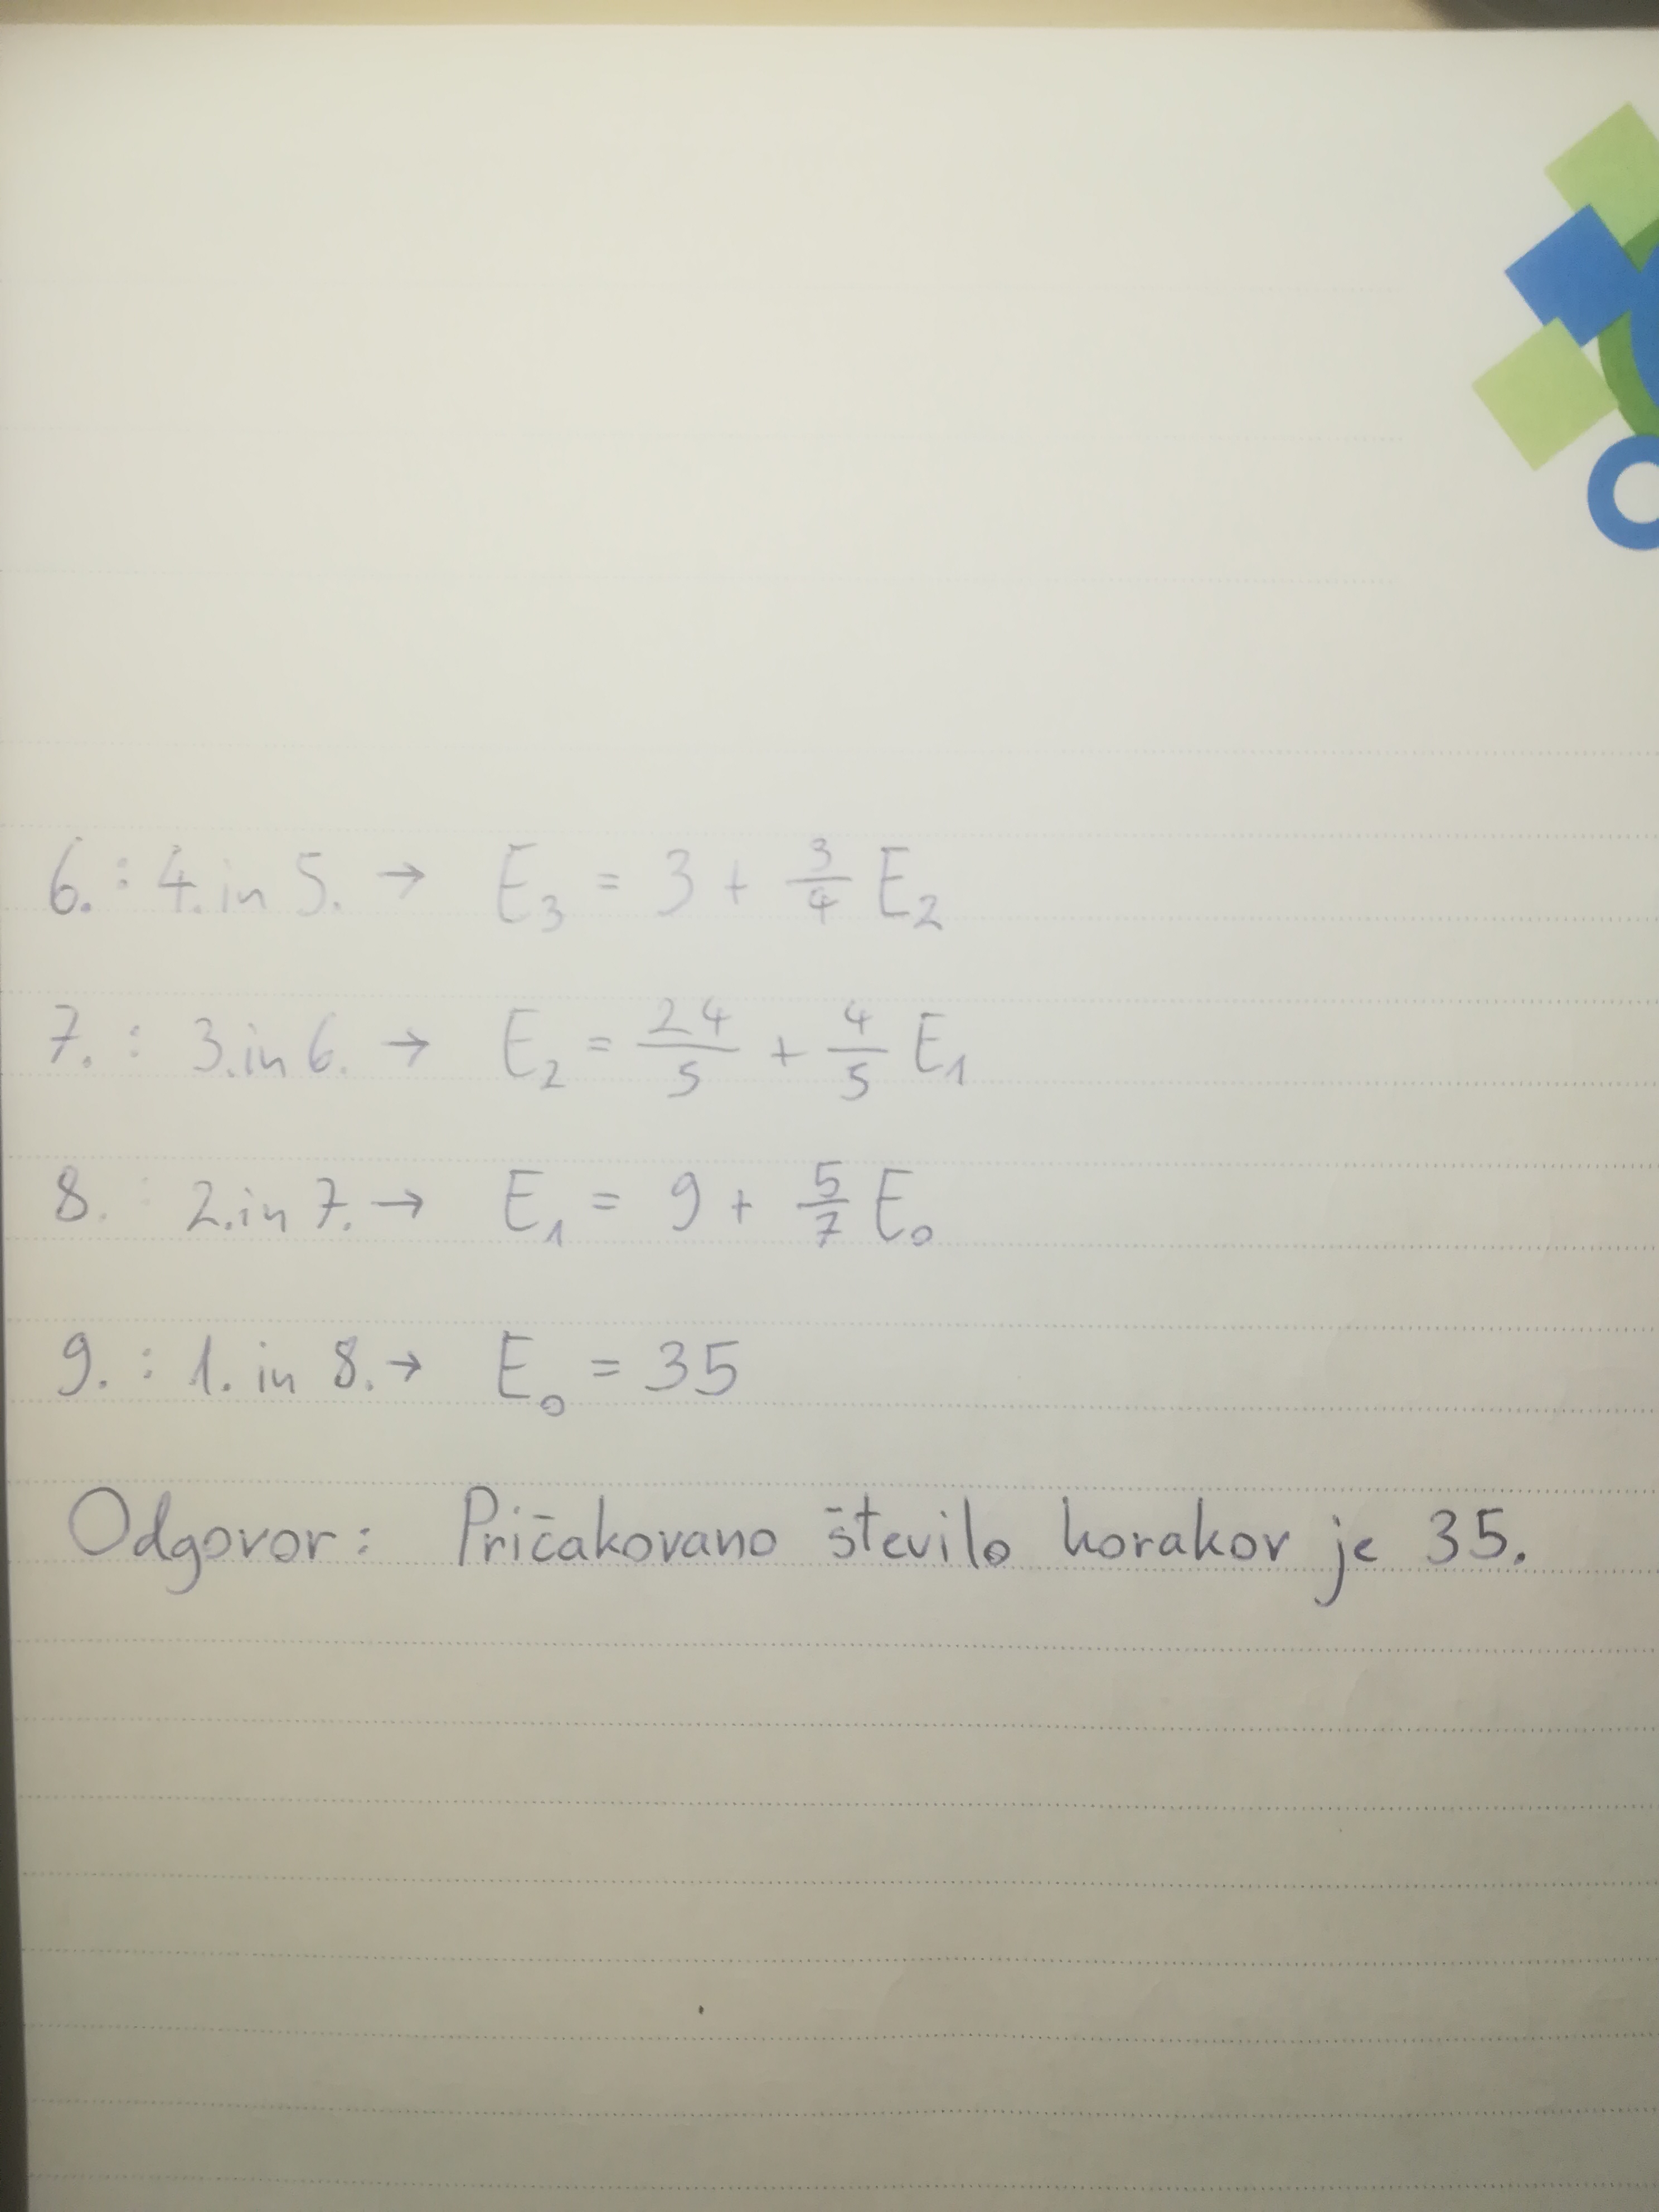 6. : 4. in 5. → E₃ = 3 + 3/4 E₂
7. : 3. in 6. → E₂ = 24/5 + 4/5 E₁
8. : 2. in 7. → E₁ = 9 + 5/7 E₀
9. : 1. in 8. → E₀ = 35
Odgovor: Pričakovano število korakov je 35.